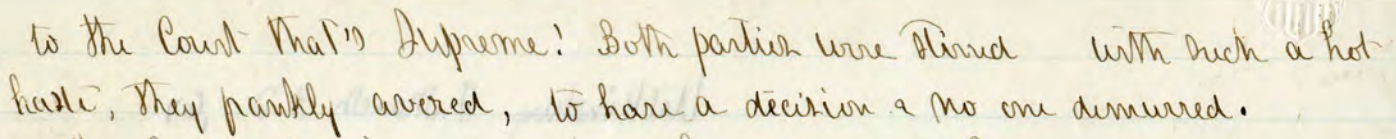 to the Court that's Supreme! Both parties were stirred with such a hot
haste, they frankly avered, to have a decision & no one demurred.